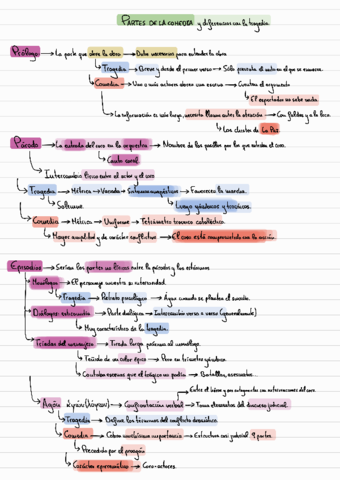 PARTES DE LA COMEDIA y diferencias con la tragedia
Prólogo → La parte que abre la obra → Datos necesarios para entender la obra
Tragedia → Breve y desde el primer verso → Sólo presenta el mito en el que se enmarca.
Comedia → Uno o más actores abren una escena → Cuentan el argumento
El espectador no sabe nada.
La información es más larga, necesita llamar antes la atención → Con
Los chistes de La Paz
Párodo → La entrada del coro en la orquestra → Nombres de los pasillos por los que entraba el coro.
Canto coral
Intercambio lírico entre el actor y el coro
Tragedia → Métrica → Variada → Sistemas anapésticos → Favorecen la marcha.
Solemne. Luego yámbicos y trocaicos.
Comedia → Métrica → Uniforme → Tetrámetro trocaico cataléctico.
Mayor amplitud y de carácter conflictivo → El coro está comprometido con la acción.
Episodios → Serían las partes no líricas entre la párodos y los estásimos
Monólogo → El personaje muestra su interioridad.
Tragedia → Retrato psicológico → Áyax cuando se plantea el suicidio.
Diálogos esticomitia → Parte dialógica → Intercambio verso a verso (generalmente)
Muy característico de la tragedia.
Tiradas del mensajero → Tirada larga próxima al monólogo.
Teñido de un color épico → Pero en trímetros yámbicos.
Contaba escenas que el trágico no podía → Batallas, asesinatos...
Entre el héroe y su antagonista con intervenciones del coro.
Agón → Confrontación verbal → Toma elementos del discurso judicial.
Tragedia → Define los términos del conflicto dramático.
Comedia → Cobra muchísima importancia → Estructura casi judicial 9 partes.
Precedido por el proagón
Carácter epirremático → Coro-actores.